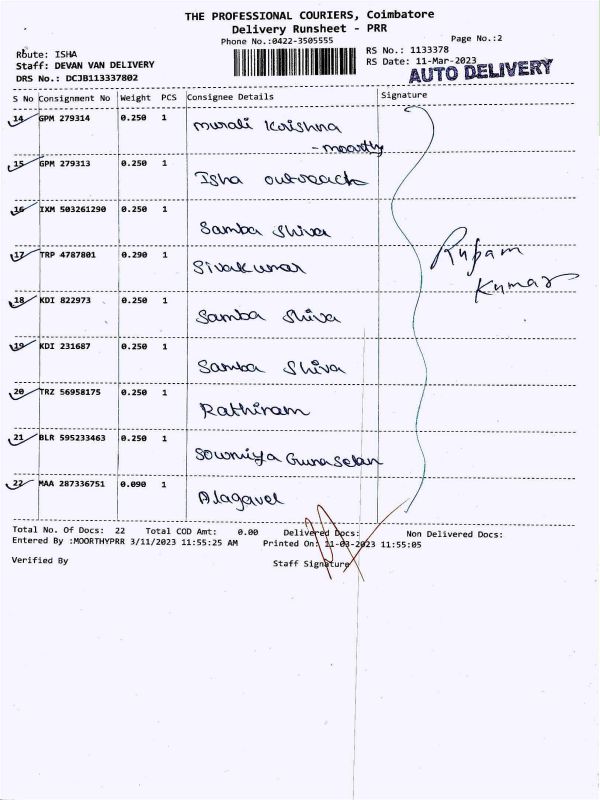 THE PROFESSIONAL COURIERS, Coimbatore
Delivery Runsheet - PRR
Phone No.:0422-3505555
Page No.:2
Route: ISHA
RS No.: 1133378
Staff: DEVAN VAN DELIVERY
RS Date: 11-Mar-2023
DRS No.: DCJB113337802
AUTO DELIVERY
S No Consignment No Weight PCS Consignee Details Signature
14 GPM 279314 0.250 1 Murali Krishna
- moorthy
15 GPM 279313 0.250 1 Isha outreach
16 IXM 503261290 0.250 1 Samba Shiva
17 TRP 4787801 0.290 1 Sivakumar
Rupam
Kumar
18 KDI 822973 0.250 1 Samba Shiva
19 KDI 231687 0.250 1 Samba Shiva
20 TRZ 56958175 0.250 1 Rathiram
21 BLR 595233463 0.250 1 Sowmiya Gunaselan
22 MAA 287336751 0.090 1 Alagavel
Total No. Of Docs: 22 Total COD Amt: 0.00 Delivered Docs: Non Delivered Docs:
Entered By :MOORTHYPRR 3/11/2023 11:55:25 AM Printed On: 11-03-2023 11:55:05
Verified By Staff Signature